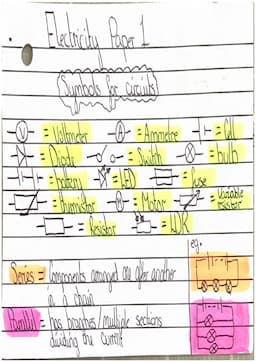 Electricity Paper 1
Symbols for circuits
V = Voltmeter A = Ammetre = Cell
= Diode = Switch = bulb
= battery = LED = fuse
= thermistor M = Motor = Variable resistor
= Resistor = LDR
eg.
Series = Components arranged one after another
in a chain
Parallel = has branches/multiple sections
dividing the current